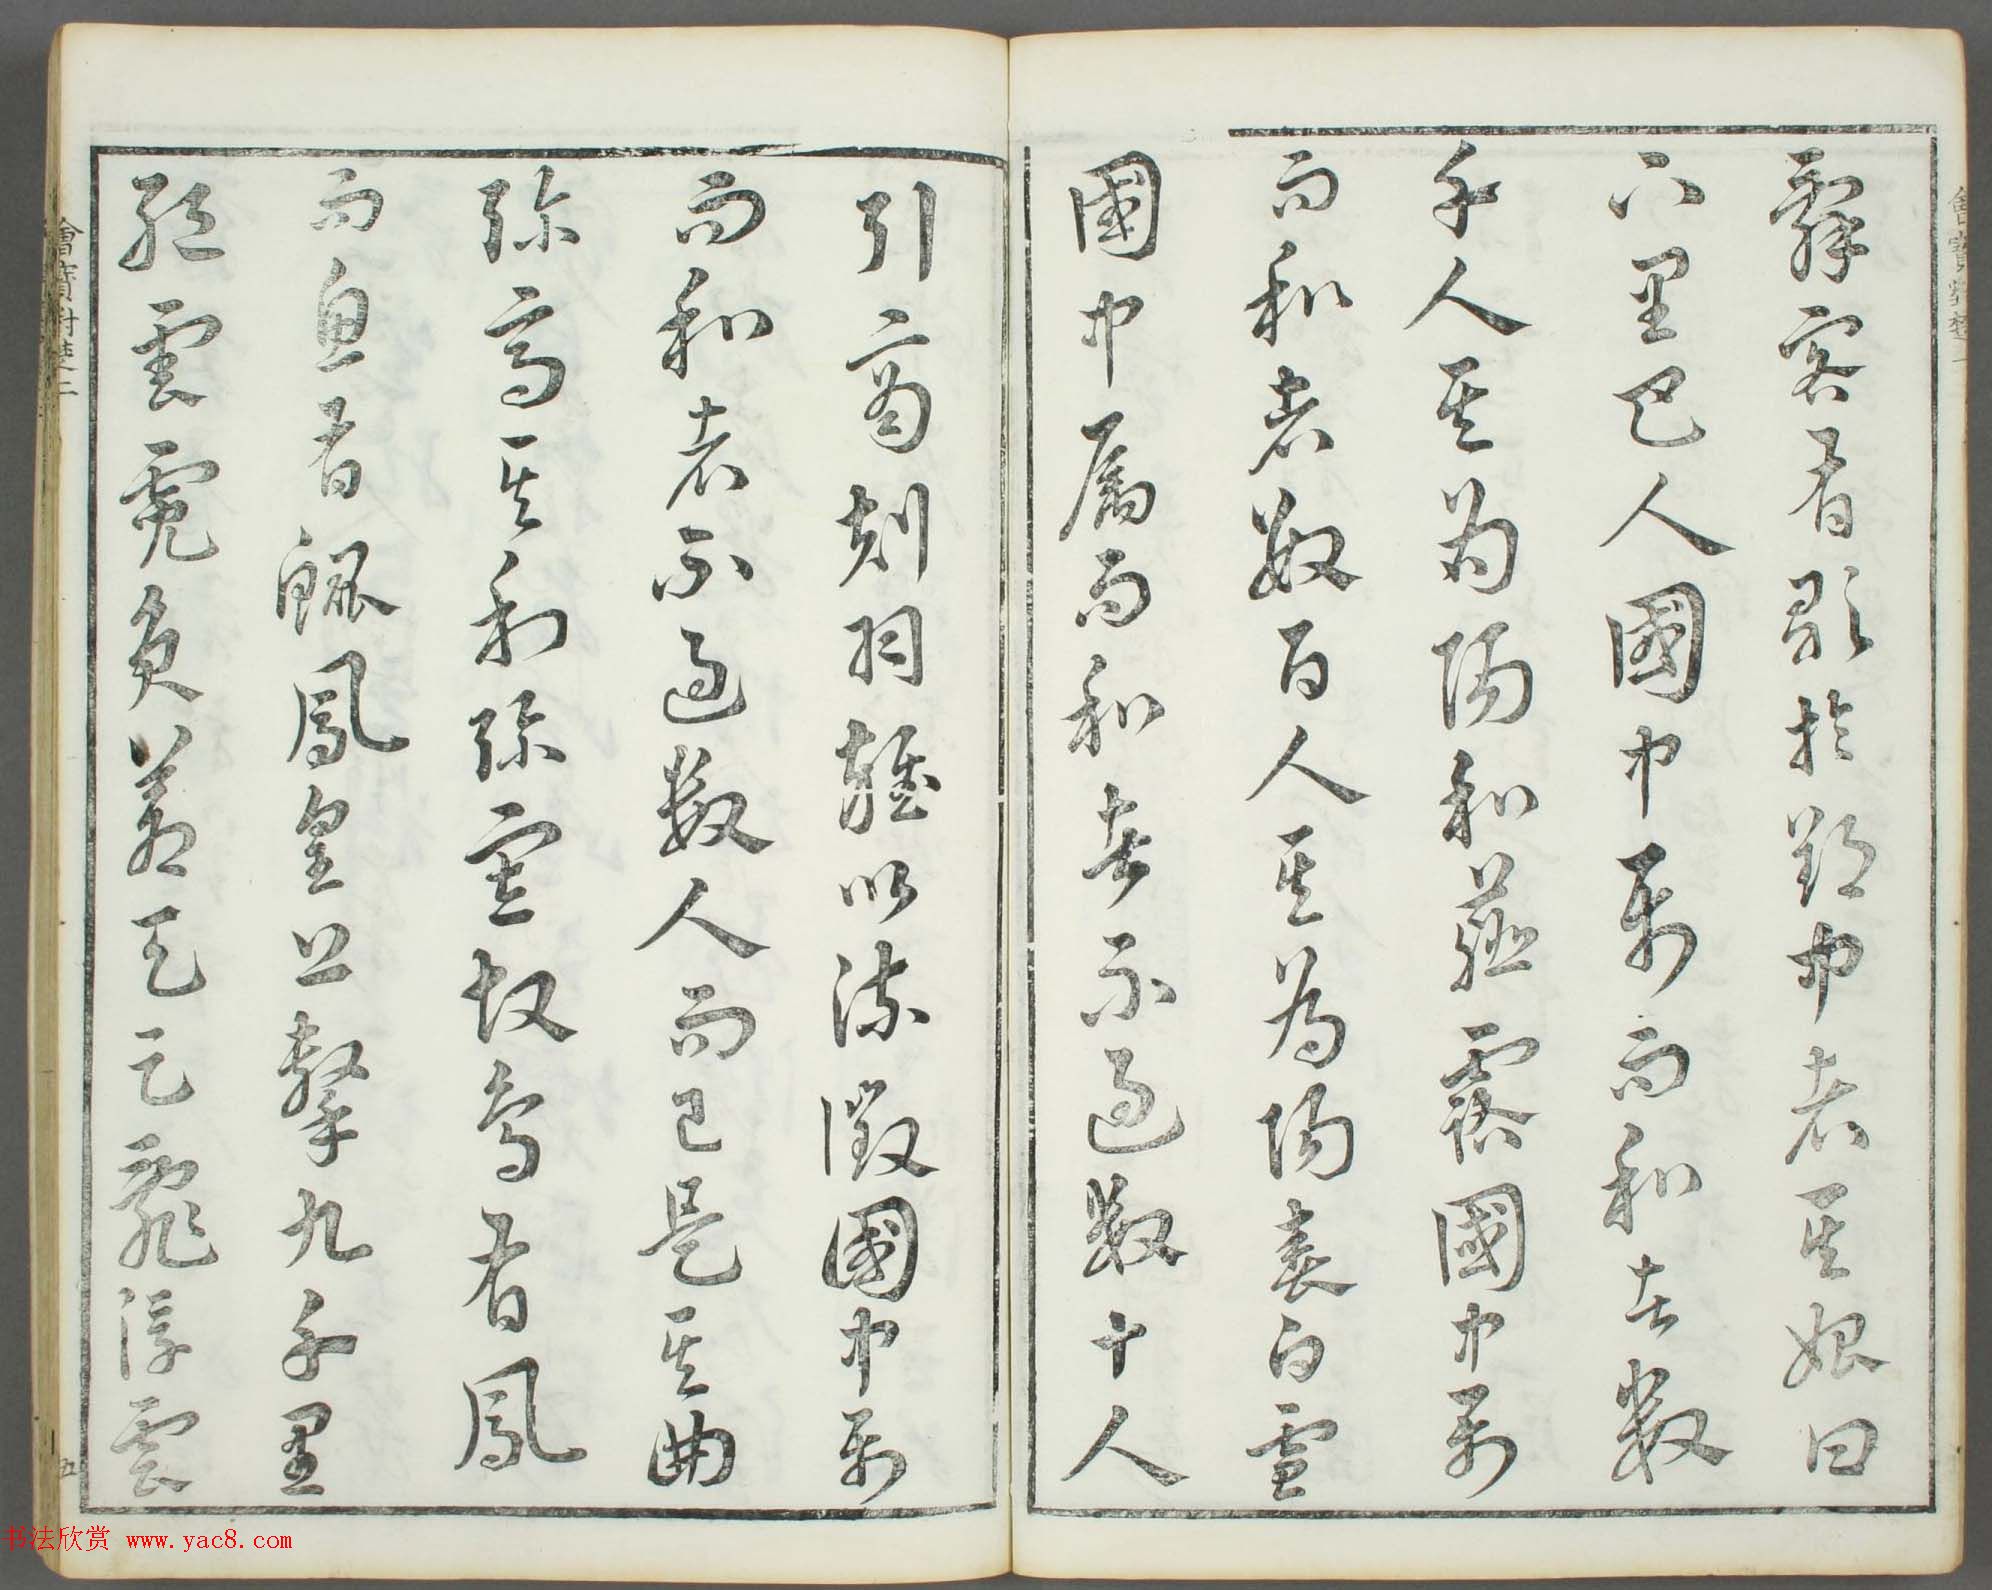 辭客有歌於郢中者其始曰
下里巴人國中属而和者数
千人其为陽和薤露國中属
而和者数百人其為陽春白雪
國中属而和者不過数十人
引商刻羽雜以流徵國中属
而和者不過数人而已是其曲
弥高其和弥寡故鳥有鳳
而魚有鯤鳳皇上擊九千里
絕雲霓負蒼天足亂浮雲
五
书法欣赏 www.yac8.com